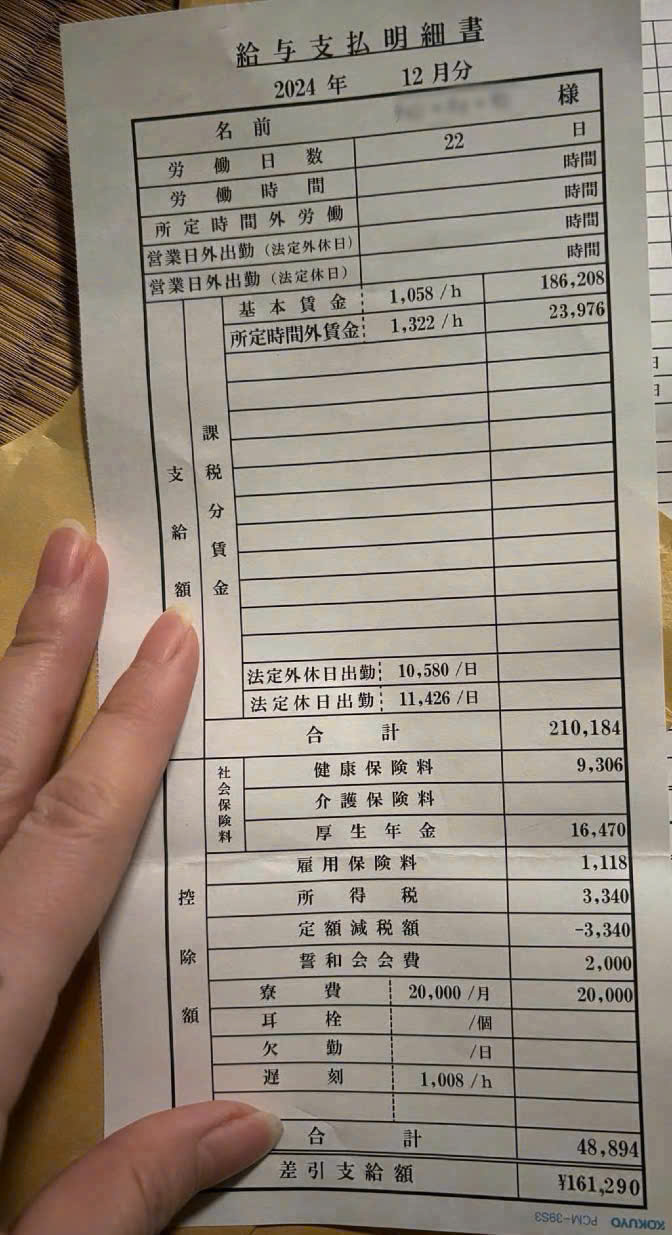 給与支払明細書
2024 年 12 月分
名前 様
労働日数 22 日
労働時間 時間
所定時間外労働 時間
営業日外出勤（法定外休日） 時間
営業日外出勤（法定休日） 時間
支給額
課税分賃金
基本賃金 1,058 /h 186,208
所定時間外賃金 1,322 /h 23,976
法定外休日出勤 10,580 /日
法定休日出勤 11,426 /日
合計 210,184
控除額
社会保険料
健康保険料 9,306
介護保険料
厚生年金 16,470
雇用保険料 1,118
所得税 3,340
定額減税額 -3,340
誓和会会費 2,000
寮費 20,000 /月 20,000
耳栓 /個
欠勤 /日
遅刻 1,008 /h
合計 48,894
差引支給額 ¥161,290
KOKUYO PCM-39S3